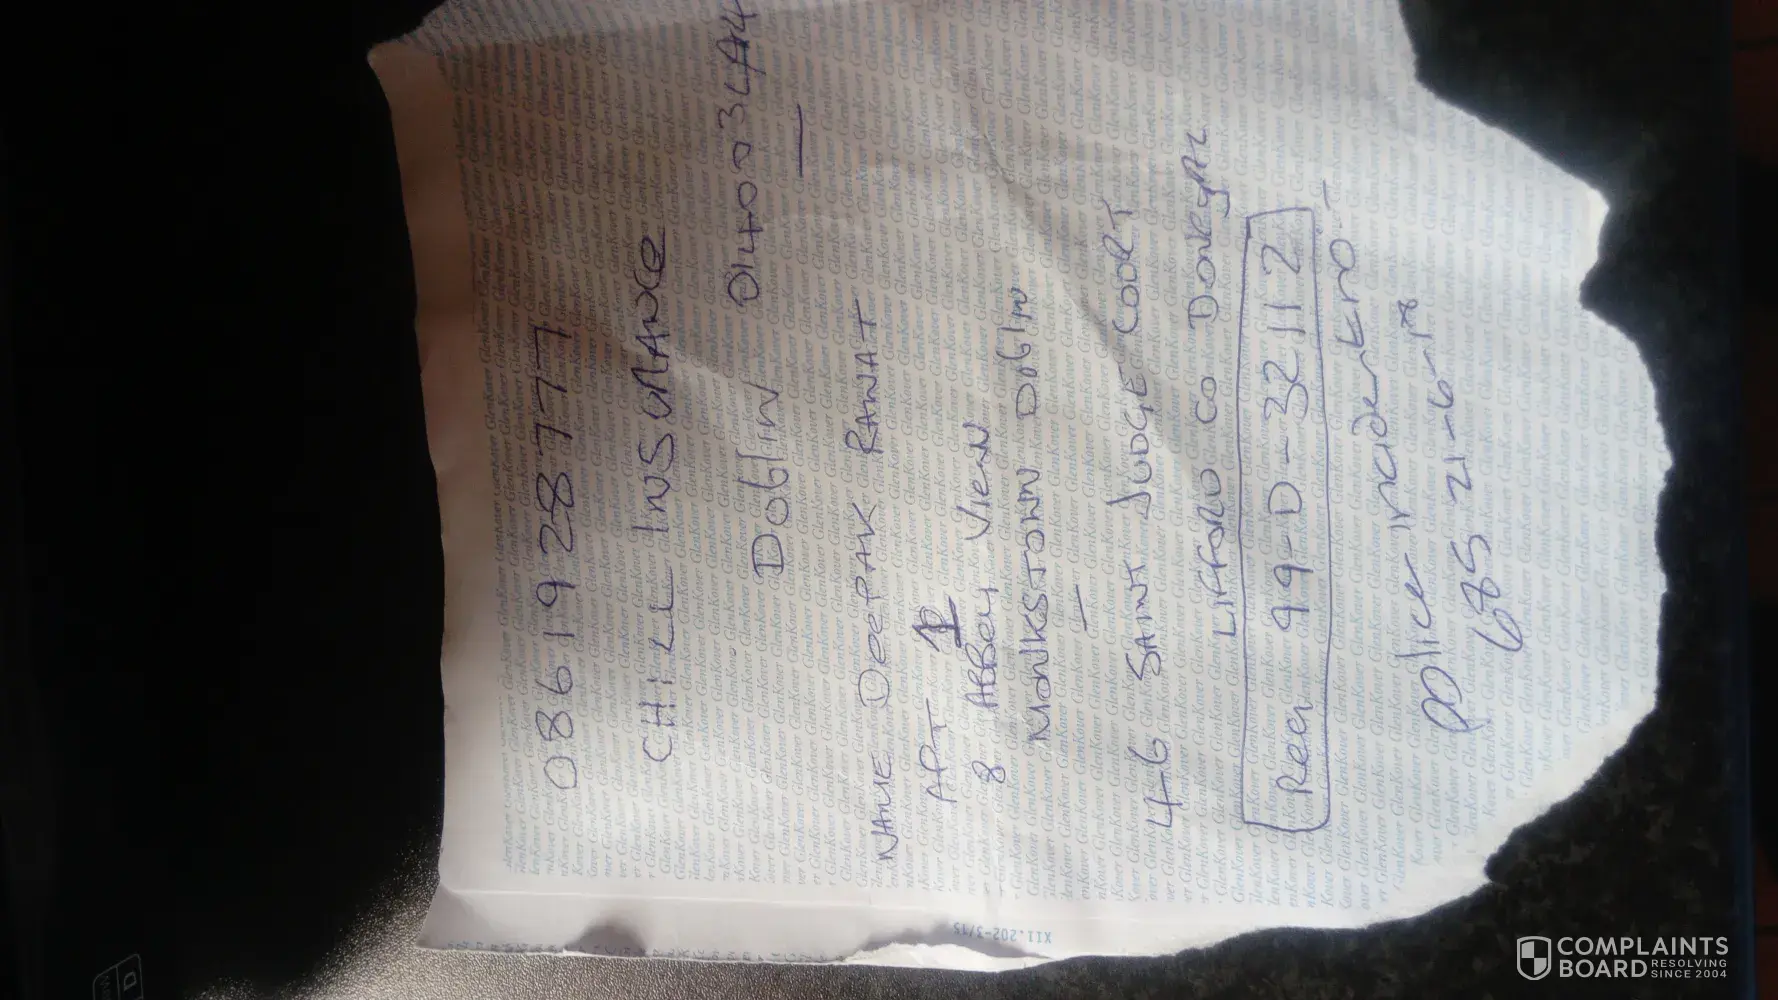 0861928777
CHILL INSURANCE
DUBlIN 014003444
NAME DEEPAK RAWAT
APT 1
8 ABBEY VIEW
MONKSTOWN DUBlIN
46 SAINT JUDGE COURT
LIFFORD CO DONEGAL
REG 99-D-32112
police incident no
685 21-6-18
X11.202-3/15
GlenKover GlenKover GlenKover
COMPLAINTS
BOARD RESOLVING
SINCE 2004